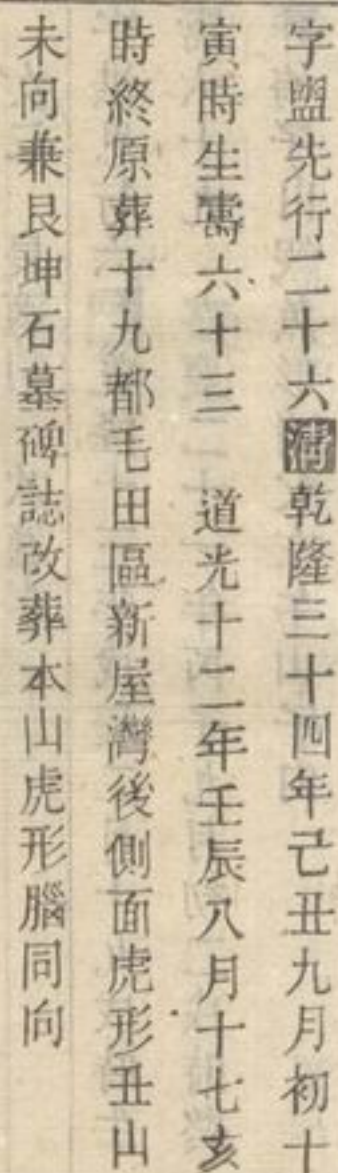 字盟先行二十六清乾隆三十四年己丑九月初十
寅時生壽六十三　道光十二年壬辰八月十七亥
時終原葬十九都毛田區新屋灣後側面虎形丑山
未向兼艮坤石墓碑誌改葬本山虎形腦同向